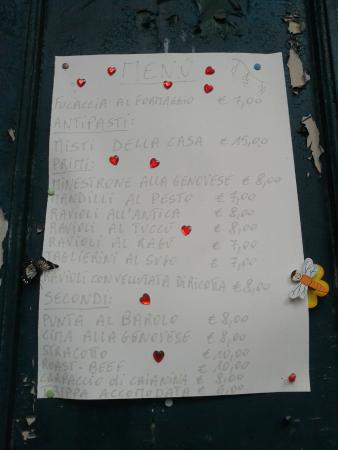 MENÚ
FOCACCIA AL FORMAGGIO € 7,00
ANTIPASTI:
MISTI DELLA CASA € 15,00
PRIMI:
MINESTRONE ALLA GENOVESE € 8,00
MANDILLI AL PESTO € 7,00
RAVIOLI ALL'ANTICA € 8,00
RAVIOLI AL TUCCÙ € 8,00
RAVIOLI AL RAGÙ € 7,00
TAGLIERINI AL SUGO € 7,00
RAVIOLI CON VELLUTATA DI RICOTTA € 8,00
SECONDI:
PUNTA AL BAROLO € 8,00
CIMA ALLA GENOVESE € 8,00
STRACOTTO € 10,00
ROAST-BEEF € 10,00
CARPACCIO DI CHIANINA € 8,00
TRIPPA ACCOMODATA € 6,00